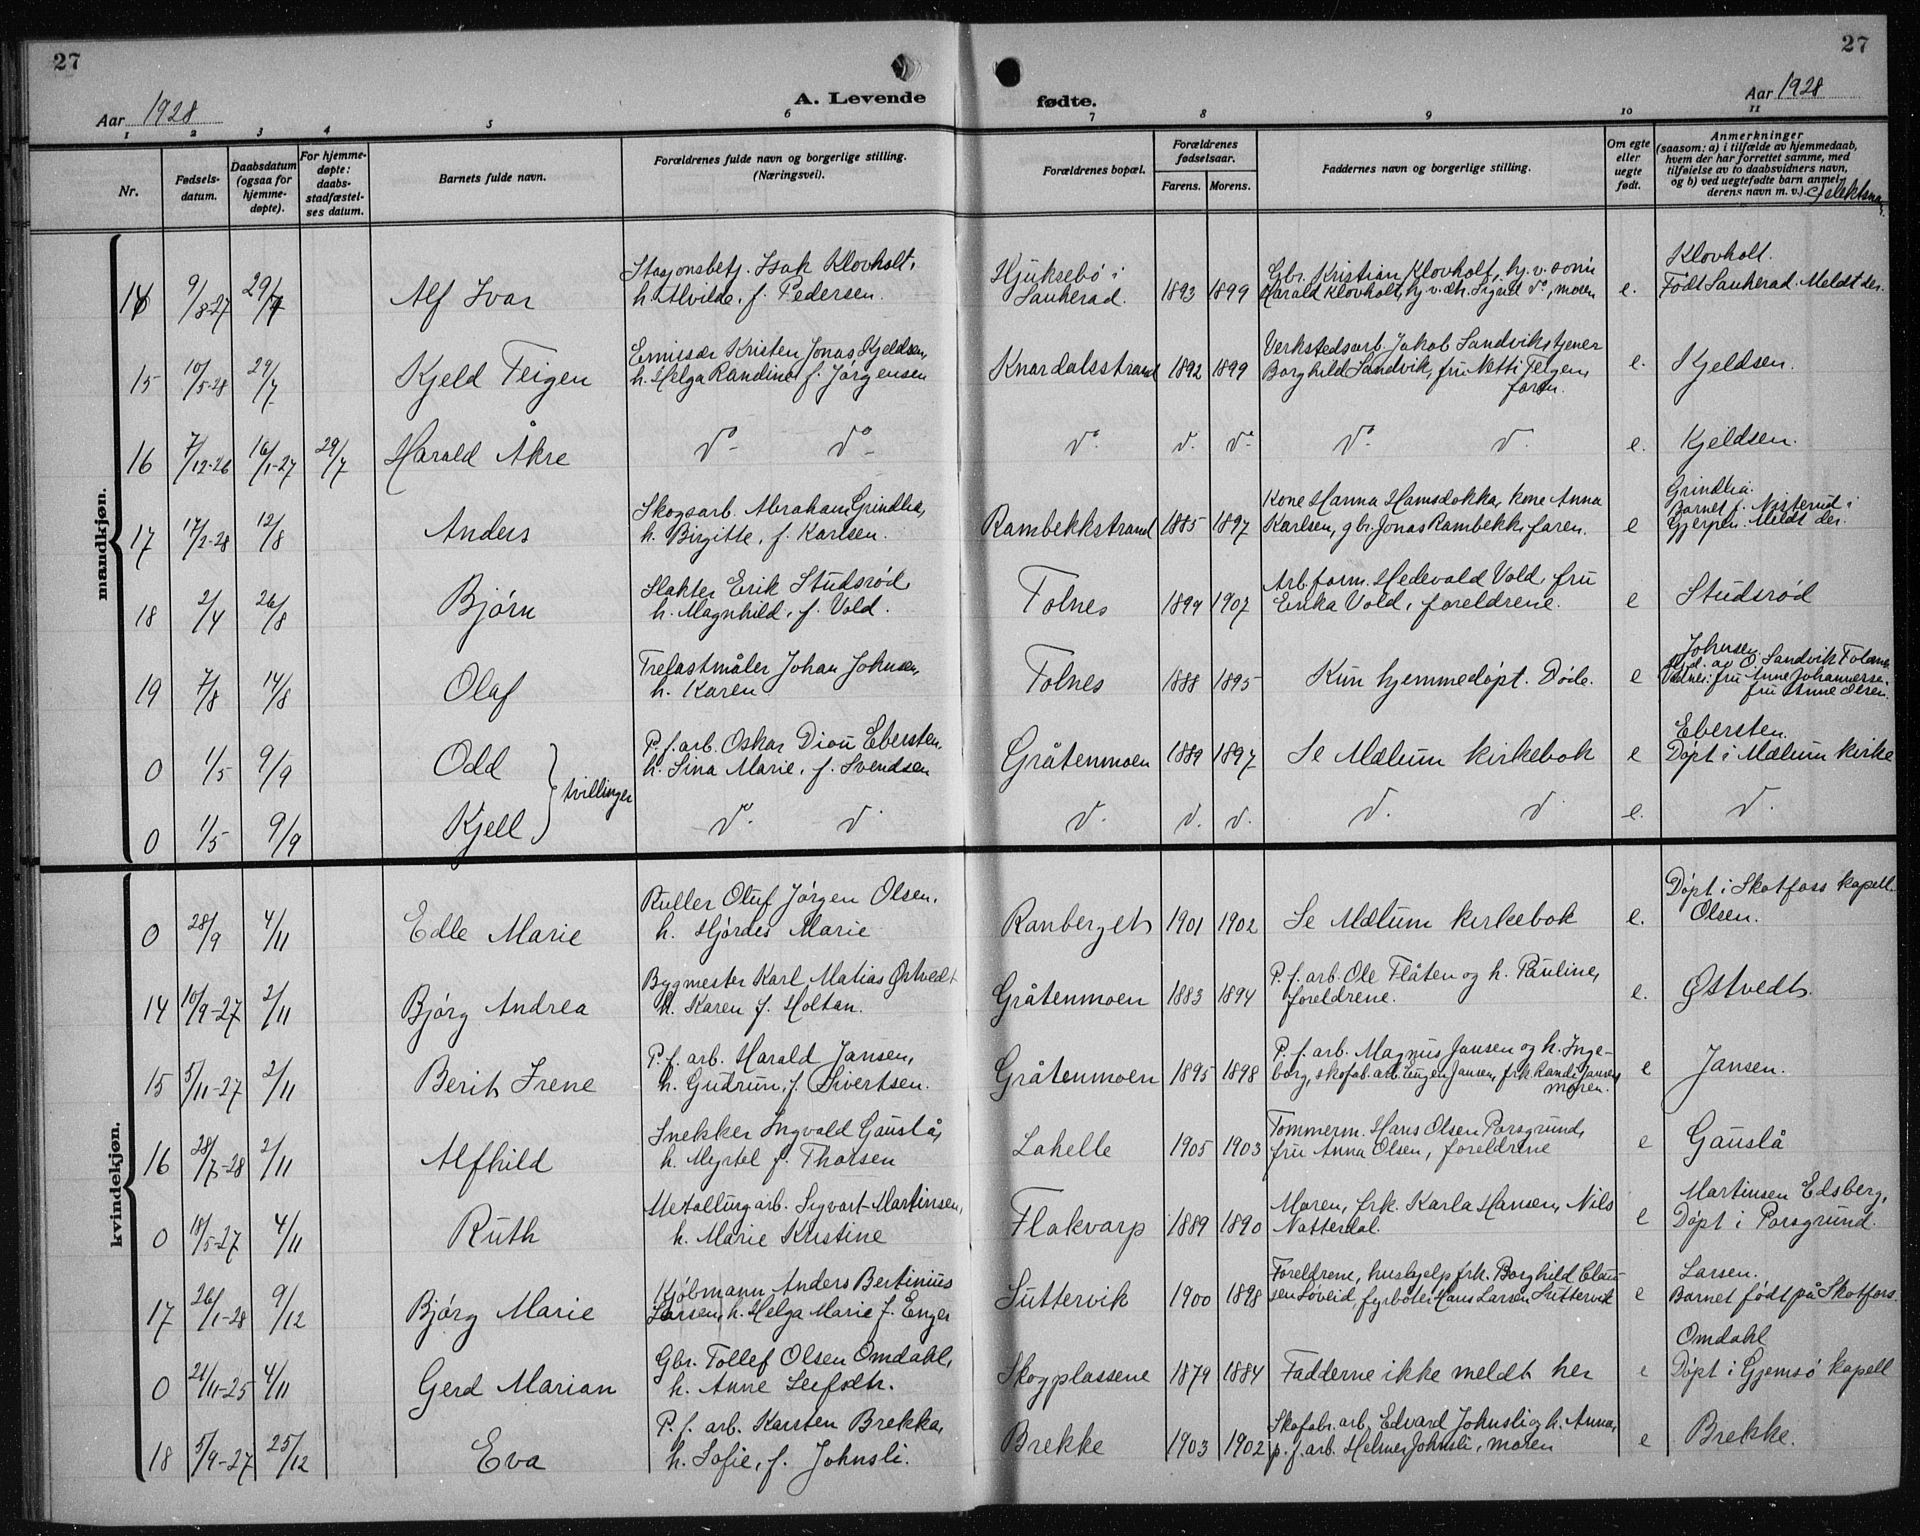 27
27
Aar 1928
A. Levende fødte.
Aar 1928
1 2 3 4 5 6 7 8 9 10 11
Nr.
Fødsels-
datum.
Daabsdatum
(ogsaa for
hjemme-
døpte).
For hjemme-
døpte:
daabs-
stadfæstel-
ses datum.
Barnets fulde navn.
Forældrenes fulde navn og borgerlige stilling.
(Næringsvei).
Forældrenes bopæl.
Forældrenes
fødselsaar.
Farens. Morens.
Faddernes navn og borgerlige stilling.
Om egte
eller
uegte
født.
Anmerkninger
(saasom: a) i tilfælde av hjemmedaab,
hvem der har forrettet samme, med
tilføielse av to daabsvidners navn,
og b) ved uegtefødte barn anmel-
derens navn m. v.).
mandkjøn.
14 9/8-27 29/7 Alf Ivar
Stasjonsbetj. Isak Klovholt,
h. Alvilde, f. Pedersen.
Hjuksebö i
Sauherad. 1893 1899
Gbr. Kristian Klovholt, hj.v. sönn
Harald Klovholt, hj.v. dh. Sigrid do, moren
e.
Klovholt.
Født Sauherad. Meldt der.
15 10/5-28 29/7 Kjeld Teigen
Emissær Kristen Jonas Kjeldsen,
h. Helga Randine f. Jørgensen
Knardalsstrand 1892 1899
Verkstedsarb. Jakob Sandvik, tjener
Borghild Sandvik, fru Netti Teigen,
faren.
e. Kjeldsen.
16 7/12-26 16/1-27 29/7 Harald Åkre
do do do d. d. do d. e. Kjeldsen.
17 17/2-28 12/8 Anders
Skogsarb. Abraham Grindlia,
h. Birgitte, f. Karlsen.
Rambekkstrand 1885 1897
Kone Hanna Hamsdokka, kone Anna
Karlsen, gbr. Jonas Rambekk, faren.
e
Grindlia.
Barnet f. Nisterud i
Gjerpen. Meldt der.
18 2/4 26/8 Bjørn
Slakter Erik Studsrød,
h. Magnhild, f. Vold.
Folnes 1899 1907
Arb.form. Hedevald Vold, fru
Erika Vold, foreldrene.
e Studsrød
19 7/8 14/8 Olaf
Trelastmåler Johan Johnsen,
h. Karen
Folnes 1888 1895
Kun hjemmedøpt. Døde.
e
Johnsen.
av O. Sandvik Folnes
fru Anne Johannessen,
fru Anne Olsen.
0 1/5 9/9 Odd
tvillinger
P.f. arb. Oskar Dion Ebersten,
h. Sina Marie, f. Svendsen
Gråtenmoen 1889 1897
Se Mælum kirkebok
e
Ebersten.
Døpt i Mælum kirke
0 1/5 9/9 Kjell
do d. d. d. d. d. d. e. d.
kvindekjøn.
0 28/9 4/11 Edle Marie
Ruller Oluf Jørgen Olsen,
h. Hjørdes Marie
Ranberget 1901 1902
Se Mælum kirkebok
e.
Døpt i Skotfoss kapell.
Olsen.
14 10/9-27 2/11 Bjørg Andrea
Bygmester Karl Matias Østvedt
h. Karen f. Holtan.
Gråtenmoen 1883 1894
P.f. arb. Ole Flåten og h. Pauline,
foreldrene.
e. Østvedt.
15 5/11-27 2/11 Berit Irene
P.f. arb. Harald Jansen,
h. Gudrun, f. Sivertsen.
Gråtenmoen 1895 1898
P.f. arb. Magnus Jansen og h. Inge-
borg, skofab.arb. Eugen Jansen, frk. Randi Jansen
moren.
e Jansen.
16 28/7-28 2/11 Alfhild
Snekker Ingvald Gauslå,
h. Myrtel f. Thorsen
Lahelle 1905 1903
Tømmerm. Hans Olsen Porsgrund,
fru Anna Olsen, foreldrene
e Gauslå
0 18/5-27 4/11 Ruth
Metallurgarb. Sigvart Martinsen,
h. Marie Kristine
Flakvarp 1889 1890
Moren, frk. Karla Hansen, Nils
Natterdal.
e
Martinsen Edsberg,
Døpt i Porsgrund.
17 26/1-28 9/12 Bjørg Marie
Anders Bertinius
Larsen, h. Helga Marie f. Enger
Suttervik 1900 1898
Foreldrene, hushjelp frk. Borghild Clau-
sen Løveid, fyrbøter Hans Larsen Suttervik
e
Larsen.
Barnet født på Skotfoss.
0 21/11-25 4/11 Gerd Marian
Gbr. Tollef Olsen Omdahl,
h. Anne Leifsdtr.
Skogplassene 1879 1884
Fadderne ikke meldt her
e
Omdahl
Døpt i Gjemsø kapell
18 5/9-27 25/12 Eva
P.f. arb. Karsten Brekka,
h. Sofie, f. Johnsli.
Brekke 1903 1902
Skofabr.arb. Edvard Johnsli og h. Anna,
p.f. arb. Helmer Johnsli, moren
e Brekke.